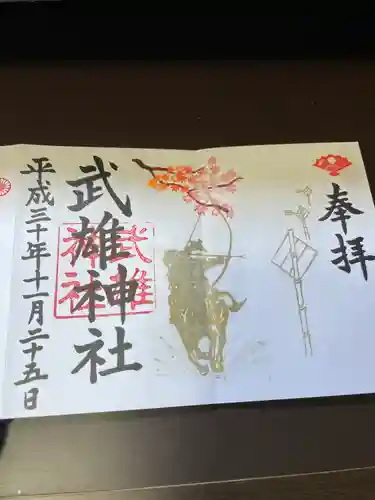 奉拝
武雄神社
武雄
神社
平成三十年十一月二十五日